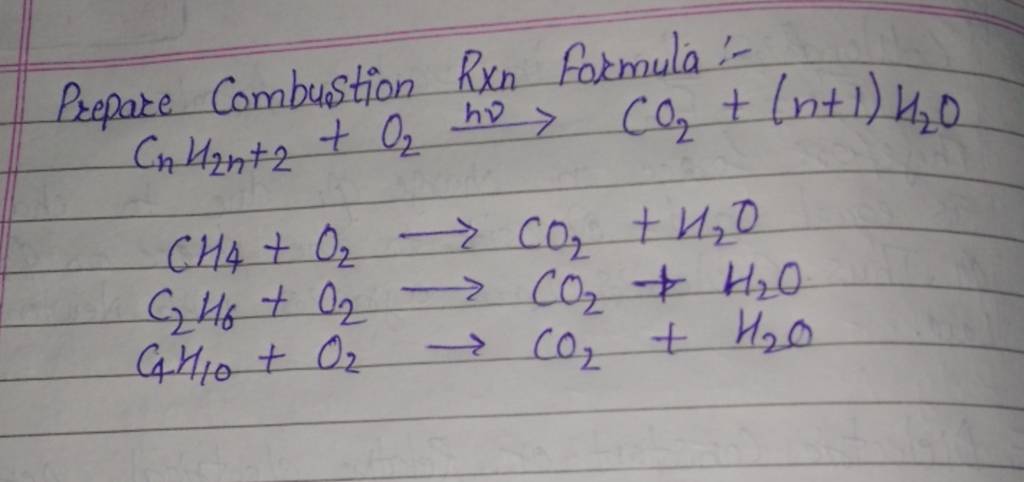 Prepare Combustion Rxn Formula :-
CnH2n+2 + O2 hν → CO2 + (n+1) H2O
CH4 + O2 → CO2 + H2O
C2H6 + O2 → CO2 + H2O
C4H10 + O2 → CO2 + H2O